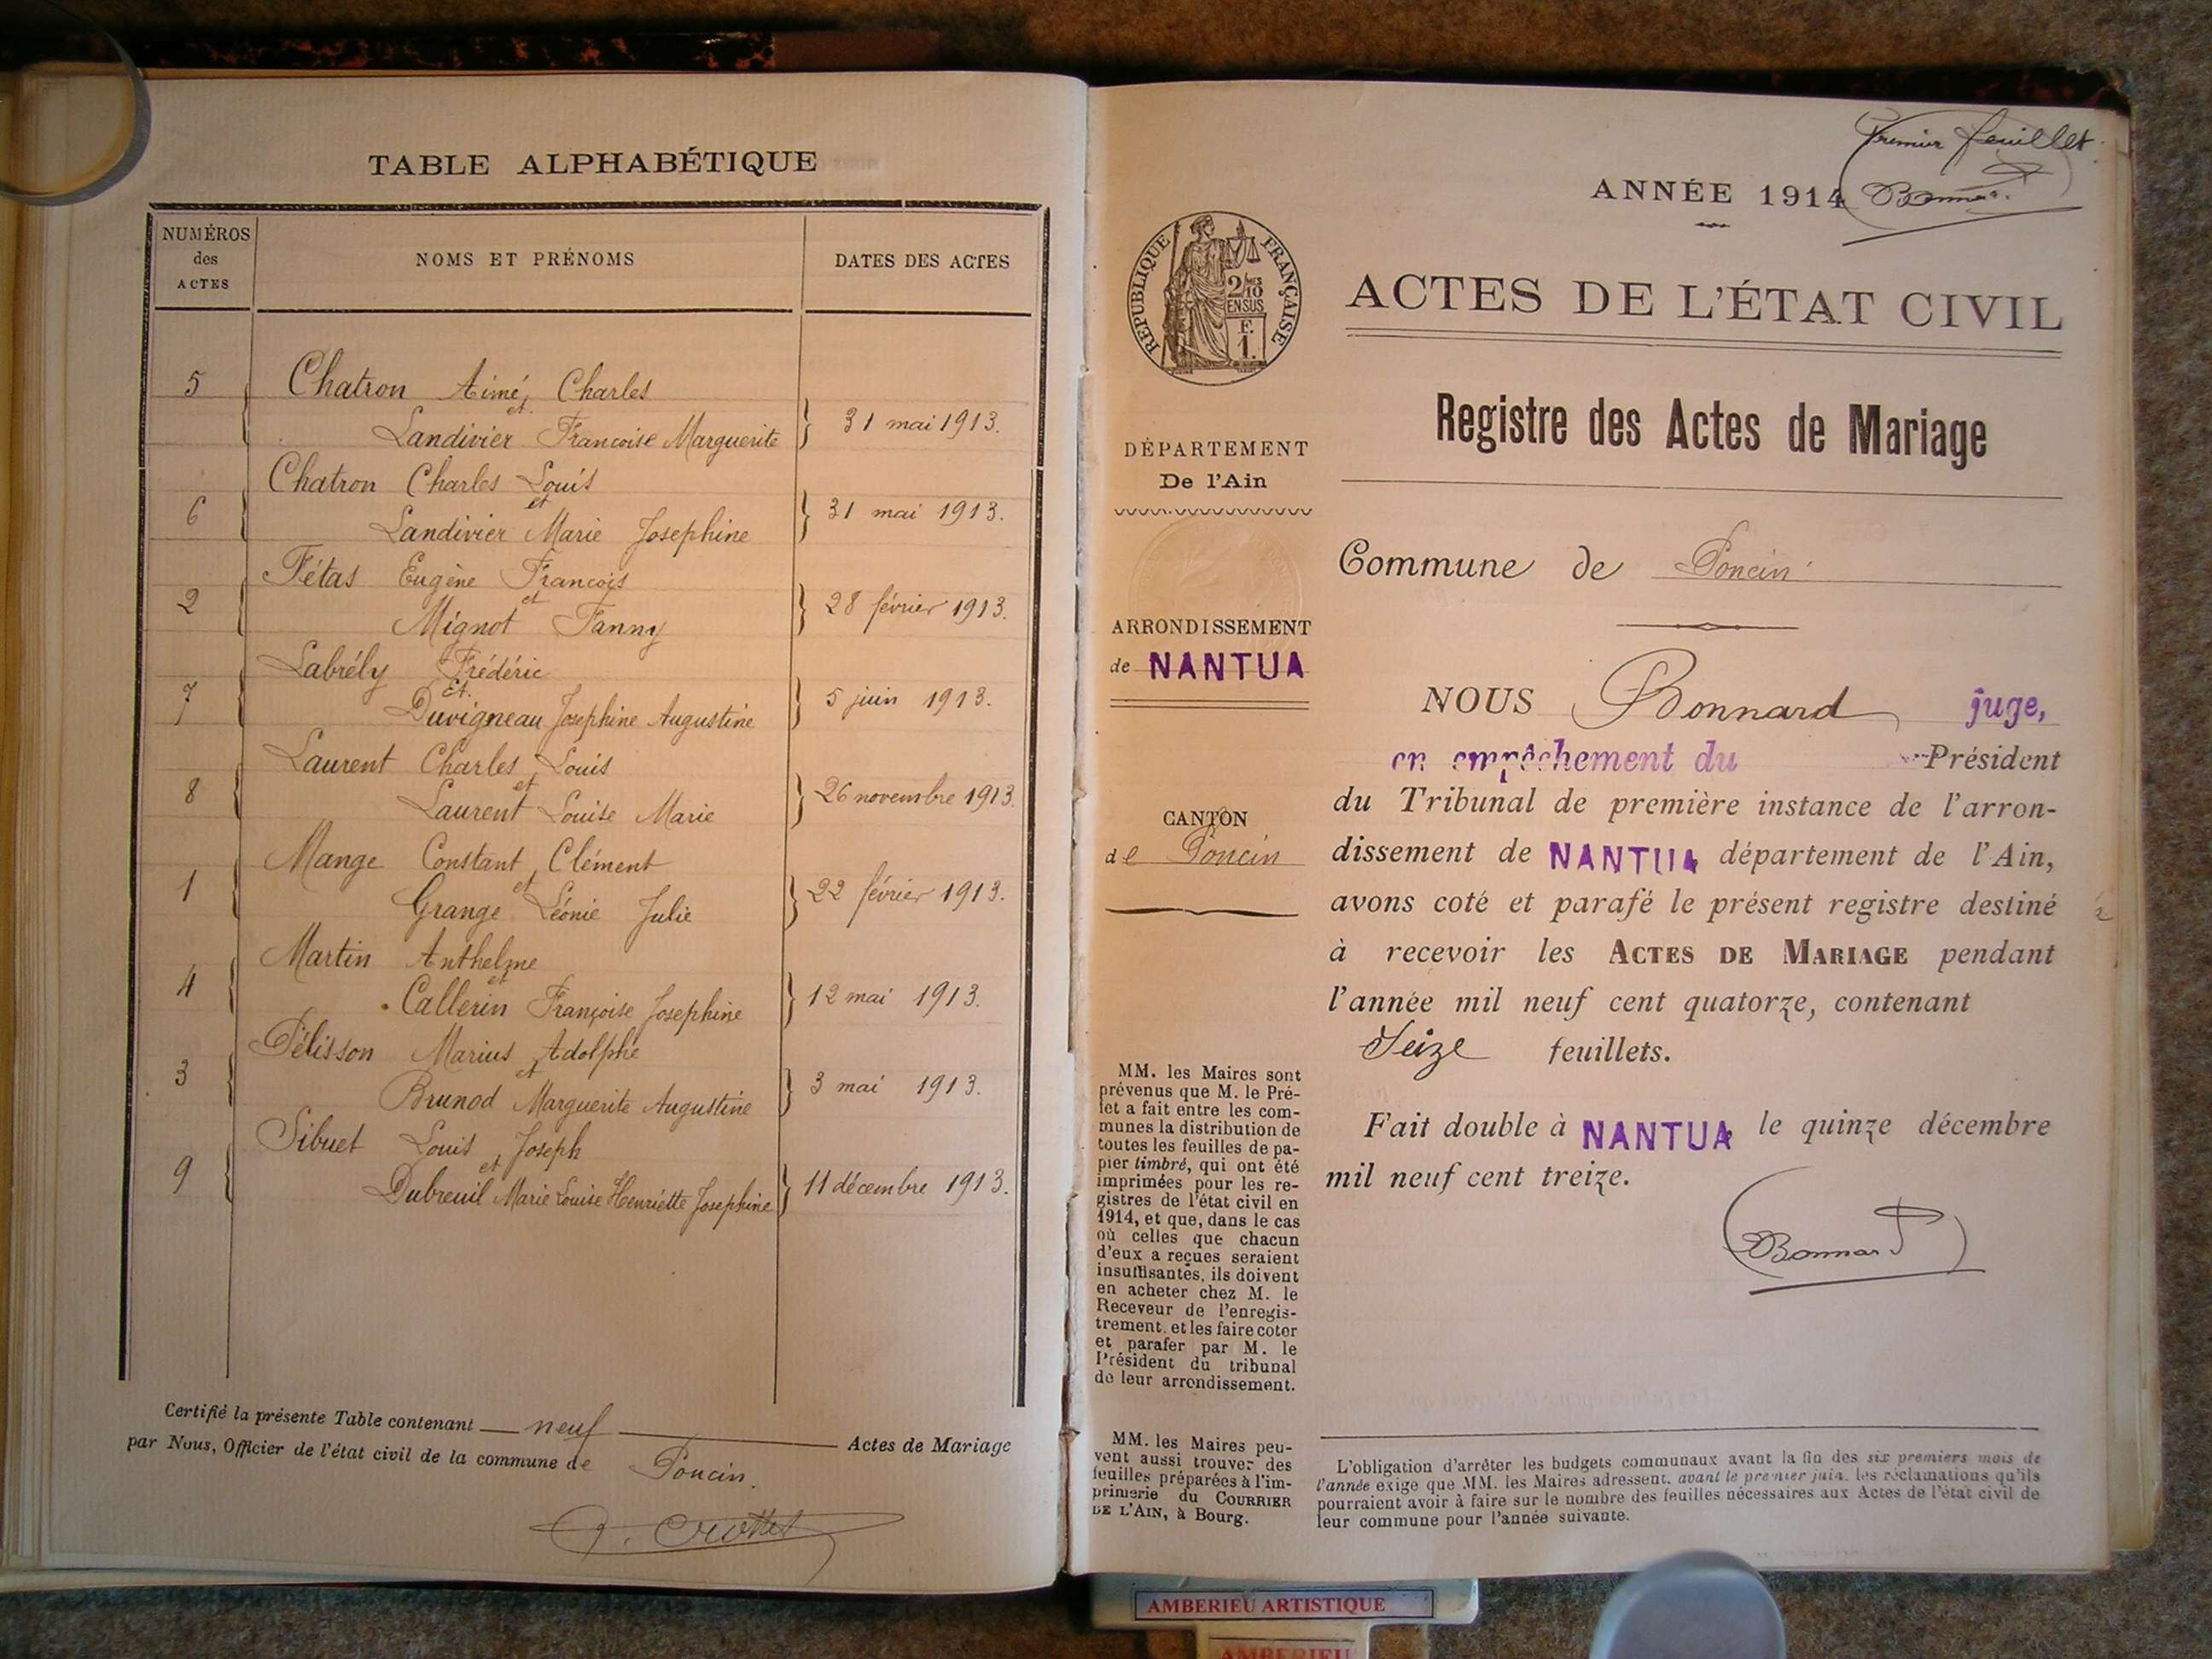 TABLE ALPHABÉTIQUE
NUMÉROS
des
ACTES
NOMS ET PRÉNOMS
DATES DES ACTES
5 Chatron Aimé, Charles
et
Landivier Francoise Marguerite
31 mai 1913.
Chatron Charles Louis
6 et
Landivier Marie Josephine
31 mai 1913.
Fétas Eugène Francois
2 et
Mignot Fanny
28 février 1913.
Labrély Frédéric
7 et
Duvigneau Josephine Augustine
5 juin 1913.
Laurent Charles Louis
8 et
Laurent Louise Marie
26 novembre 1913.
Mange Constant, Clément
1 et
Grange Léonie Julie
22 février 1913.
Martin Anthelme
4 et
Callerin Françoise Josephine
12 mai 1913.
Pélisson Marius Adolphe
3 et
Brunod Marguerite Augustine
3 mai 1913.
Sibuet Louis Joseph
9 et
Dubreuil Marie Louise Henriette Josephine
11 décembre 1913.
Certifié la présente Table contenant neuf Actes de Mariage
par Nous, Officier de l'état civil de la commune de Poncin.
Premier feuillet
ANNÉE 1914
RÉPUBLIQUE FRANÇAISE
2/10
EN SUS
F.
1.
ACTES DE L'ÉTAT CIVIL
Registre des Actes de Mariage
DÉPARTEMENT
De l'Ain
ARRONDISSEMENT
de NANTUA
CANTON
de Poncin
MM. les Maires sont
prévenus que M. le Pré-
fet a fait entre les com-
munes la distribution de
toutes les feuilles de pa-
pier timbré, qui ont été
imprimées pour les re-
gistres de l'état civil en
1914, et que, dans le cas
où celles que chacun
d'eux a reçues seraient
insuffisantes, ils doivent
en acheter chez M. le
Receveur de l'enregis-
trement, et les faire coter
et parafer par M. le
Président du tribunal
de leur arrondissement.
MM. les Maires peu-
vent aussi trouver des
feuilles préparées à l'im-
primerie du COURRIER
DE L'AIN, à Bourg.
Commune de Poncin
NOUS Bonnard juge,
en empêchement du Président
du Tribunal de première instance de l'arron-
dissement de NANTUA département de l'Ain,
avons coté et parafé le présent registre destiné
à recevoir les ACTES DE MARIAGE pendant
l'année mil neuf cent quatorze, contenant
Seize feuillets.
Fait double à NANTUA le quinze décembre
mil neuf cent treize.
Bonnard
L'obligation d'arrêter les budgets communaux avant la fin des six premiers mois de
l'année exige que MM. les Maires adressent, avant le premier juin, les réclamations qu'ils
pourraient avoir à faire sur le nombre des feuilles nécessaires aux Actes de l'état civil de
leur commune pour l'année suivante.
AMBERIEU ARTISTIQUE
AMBERIEU